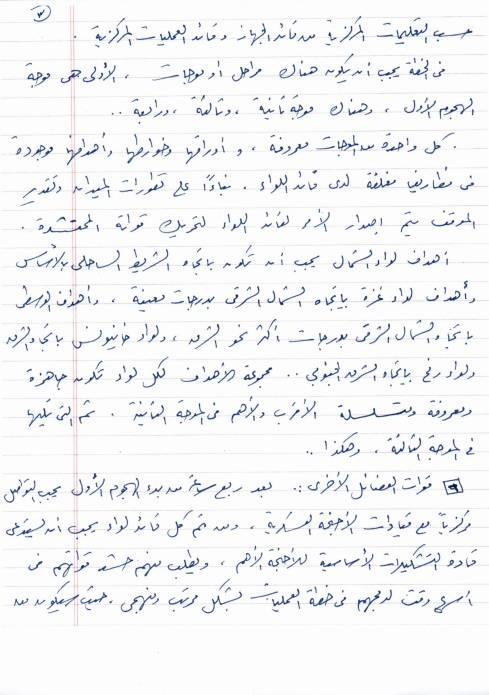 ٣
حسب التعليمات المركزية من قائد الجهاز وقائد العمليات المركزية .
في الخطة يجب أن يكون هناك مراحل أو موجات ، الأولى هي موجة
الهجوم الأول ، وهناك موجة ثانية ، وثالثة ، ورابعة ..
. كل واحدة من الموجات معروفة ، و أوراقها وخوارطها وأهدافها موجودة
في مظاريف مغلقة لدى قائد اللواء . بناءً على تطورات الميدان وتقدير
الموقف يتم إصدار الأمر لقائد اللواء لتحريك قواته المحتشدة .
أهداف لواء الشمال يجب أن تكون باتجاه الشريط الساحلي بالأساس
وأهداف لواء غزة باتجاه الشمال الشرقي بدرجات معينة ، وأهداف الوسطى
باتجاه الشمال الشرقي بدرجات أكثر نحو الشرق ، ولواء خانيونس باتجاه الشرق
ولواء رفح باتجاه الشرق الجنوبي .. مجموعة الأهداف لكل لواء تكون جاهزة
ومعروفة ومتسلسلة الأقرب والأهم في الموجة الثانية . ثم التي تليها
في الموجة الثالثة ، وهكذا ..
٩ قوات الفصائل الأخرى :. بعد ربع ساعة من بدء الهجوم الأول يجب التواصل
مركزياً مع قيادات الأجنحة العسكرية ، ومن ثم كل قائد لواء يجب أن يستدعي
قادة التشكيلات الأساسية للأجنحة الأهم ، ويطلب منهم حشد قواتهم في
أسرع وقت لدمجهم في خطة العمليات بشكل مرتب ومنهجي ، حيث سيكون من